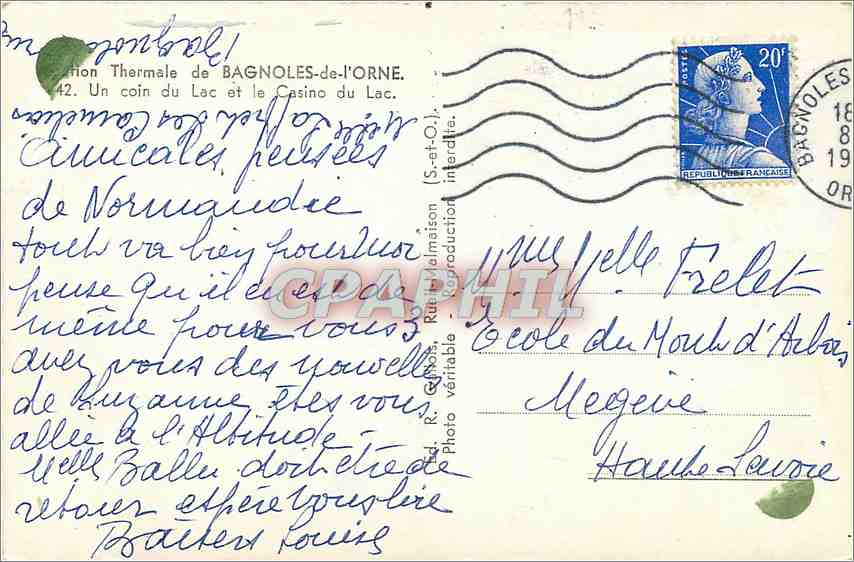 Bagnoles
...tion Thermale de BAGNOLES-de-l'ORNE.
42. Un coin du Lac et le Casino du Lac.
Amicales pensées
de Normandie
tout va bien pour moi
pense qu'il en est de
même pour vous
avez vous des nouvelles
de Suzanne, êtes vous
allée à l'Altitude -
Melle Ballu doit être de
retour espère vous lire
Baisers Louise
Ed. R. Gallois, Rueil-Malmaison (S.-et-O.).
Photo véritable - Reproduction interdite.
POSTES
20F
REPUBLIQUE FRANÇAISE
BAGNOLES
18
8
19
OR
CPAPHIL
Melle Frelet
Ecole du Mont d'Arbois
Megève
Haute Savoie